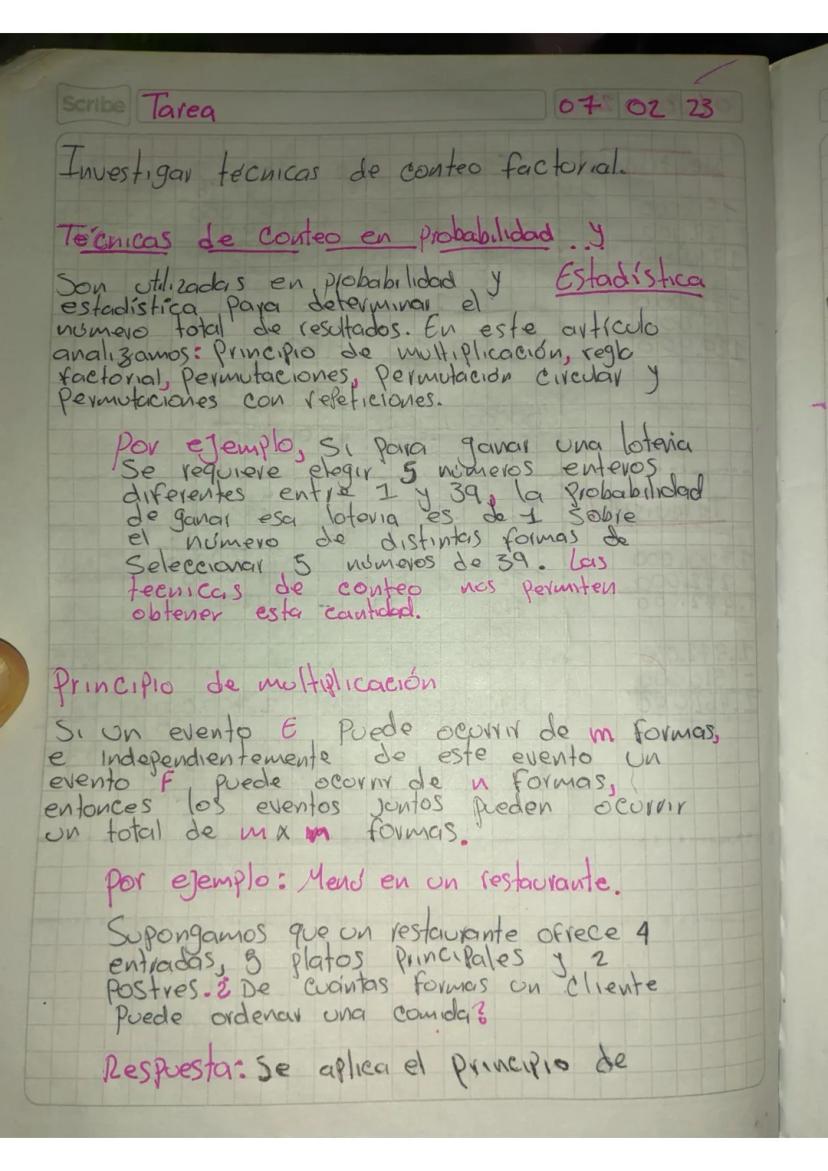 Scribe Tarea 07 02 23
Investigar técnicas de conteo factorial.
Técnicas de conteo en probabilidad y
Estadística
Son utilizadas en probabilidad y
estadística para determinar el
número total de resultados. En este artículo
analizamos: Principio de multiplicación, regla
factorial, Permutaciones, Permutación circular y
Permutaciones con repeticiones.
Por ejemplo, Si para ganar una lotería
Se requiere elegir 5 números enteros
diferentes entre 1 y 39, la Probabilidad
de ganar esa lotería es de 1 sobre
el número de distintas formas de
Seleccionar 5 números de 39. Las
tecnicas de conteo nos permiten
obtener esta cantidad.
Principio de multiplicación
Si un evento E Puede ocurrir de m formas,
e independientemente de este evento un
evento F puede ocorrir de n formas,
entonces los eventos juntos pueden ocurrir
un total de m x n formas.
Por ejemplo: Menú en un restaurante.
Supongamos que un restaurante ofrece 4
entradas, 3 platos Principales y 2
Postres. ¿De cuántas formas un cliente
Puede ordenar una comida?
Respuesta: Se aplica el principio de